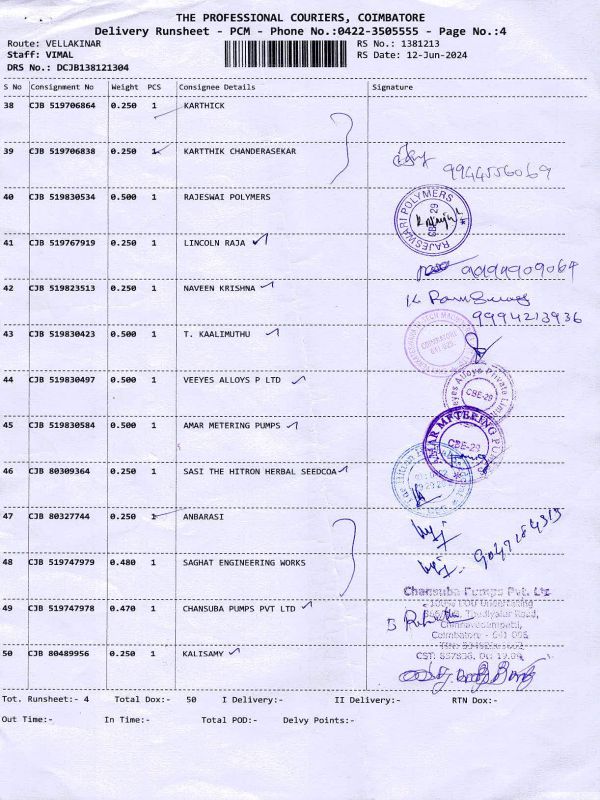 THE PROFESSIONAL COURIERS, COIMBATORE
Delivery Runsheet - PCM - Phone No.:0422-3505555 - Page No.:4
Route: VELLAKINAR RS No.: 1381213
Staff: VIMAL RS Date: 12-Jun-2024
DRS No.: DCJB138121304
S No Consignment No Weight PCS Consignee Details Signature
38 CJB 519706864 0.250 1 KARTHICK
39 CJB 519706838 0.250 1 KARTTHIK CHANDERASEKAR
9944556069
40 CJB 519830534 0.500 1 RAJESWAI POLYMERS
RAJESWARI POLYMERS
CBE-29
41 CJB 519767919 0.250 1 LINCOLN RAJA
42 CJB 519823513 0.250 1 NAVEEN KRISHNA
9994213936
43 CJB 519830423 0.500 1 T. KAALIMUTHU
COIMBATORE
44 CJB 519830497 0.500 1 VEEYES ALLOYS P LTD
Veeyes Alloys Private Limited
CBE-29
45 CJB 519830584 0.500 1 AMAR METERING PUMPS
AMAR METERING PUMPS
CBE-29
46 CJB 80309364 0.250 1 SASI THE HITRON HERBAL SEEDCOA
47 CJB 80327744 0.250 1 ANBARASI
48 CJB 519747979 0.480 1 SAGHAT ENGINEERING WORKS
49 CJB 519747978 0.470 1 CHANSUBA PUMPS PVT LTD
Chansuba Pumps Pvt. Ltd
Coimbatore
50 CJB 80489956 0.250 1 KALISAMY
Tot. Runsheet:- 4 Total Dox:- 50 I Delivery:- II Delivery:- RTN Dox:-
Out Time:- In Time:- Total POD:- Delvy Points:-